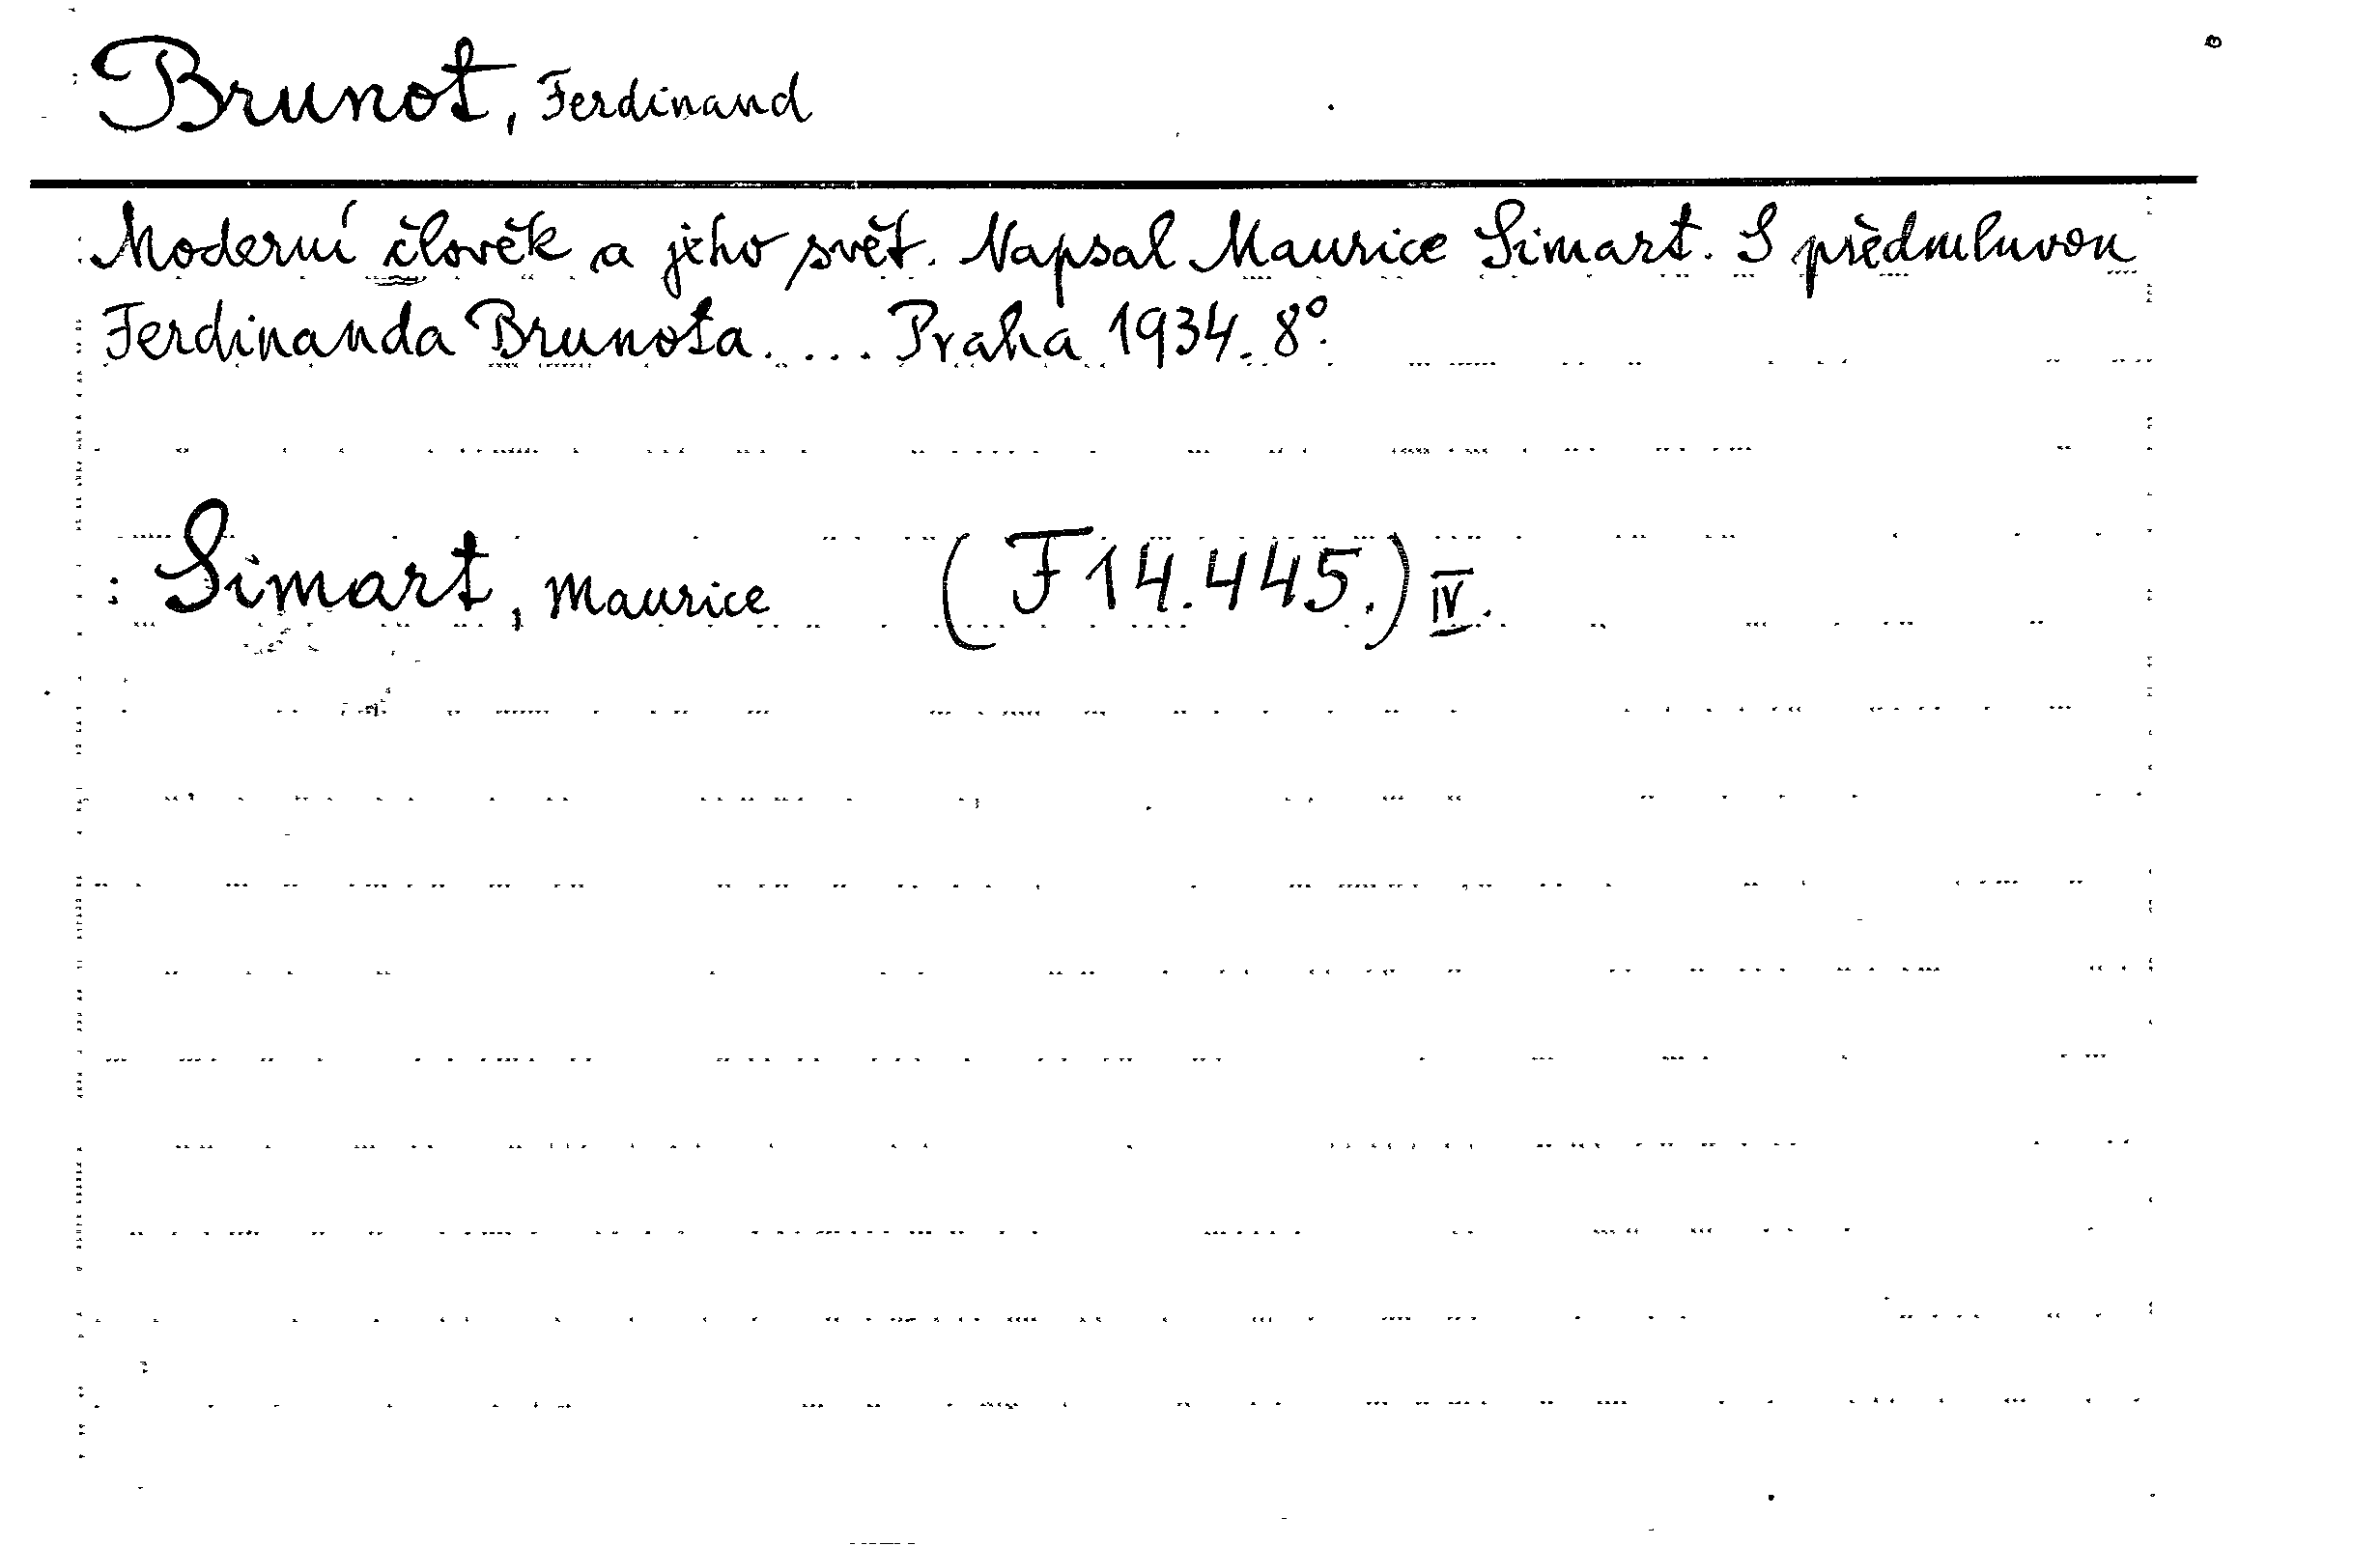 Brunot, Ferdinand
Moderní člověk a jeho svět. Napsal Maurice Simart. S předmluvou
Ferdinanda Brunota. ... Praha 1934. 8°.
: Simart, Maurice (F 14.445.) IV.